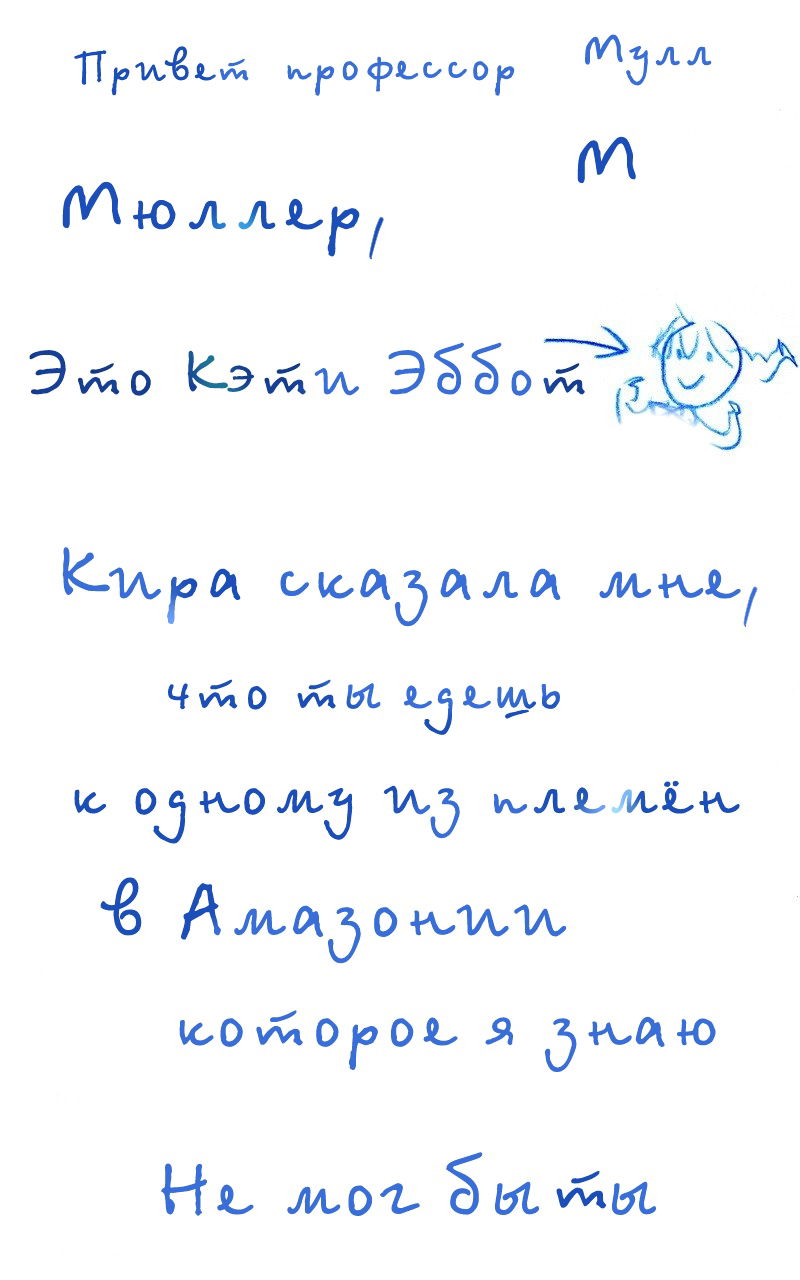 Привет профессор Мулл
М
Мюллер,
Это Кэти Эббот
Кира сказала мне,
что ты едешь
к одному из племён
в Амазонии
которое я знаю
Не мог бы ты